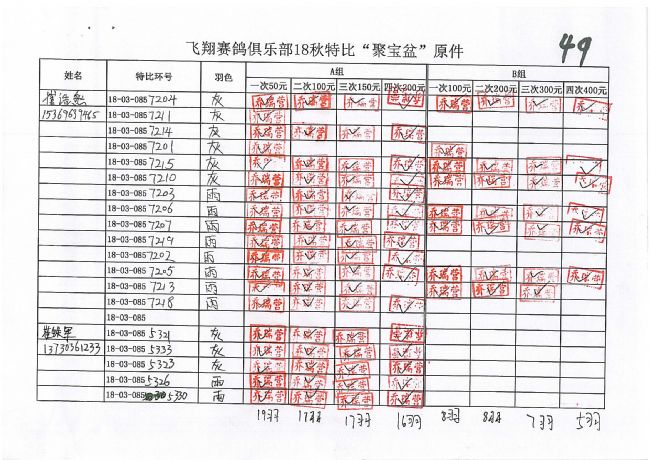 飞翔赛鸽俱乐部18秋特比“聚宝盆”原件
49
姓名 特比环号 羽色 A组 B组
一次50元 二次100元 三次150元 四次200元 一次100元 二次200元 三次300元 四次400元
18-03-0857204 灰 乔瑞营 乔瑞营 乔瑞营 乔瑞营 乔瑞营 乔瑞营 乔瑞营
15369639465 18-03-0857211 灰 乔瑞营
18-03-0857214 灰 乔瑞营 乔瑞营 乔瑞营 乔瑞营
18-03-0857201 灰 乔瑞营 乔瑞营
18-03-0857215 灰 乔瑞营 乔瑞营 乔瑞营 乔瑞营 乔瑞营 乔瑞营
18-03-0857210 灰 乔瑞营 乔瑞营 乔瑞营 乔瑞营 乔瑞营 乔瑞营 乔瑞营 乔瑞营
18-03-0857203 雨 乔瑞营 乔瑞营 乔瑞营 乔瑞营
18-03-0857206 雨 乔瑞营 乔瑞营 乔瑞营 乔瑞营 乔瑞营 乔瑞营 乔瑞营 乔瑞营
18-03-0857207 雨 乔瑞营 乔瑞营 乔瑞营 乔瑞营 乔瑞营 乔瑞营 乔瑞营 乔瑞营
18-03-0857219 雨 乔瑞营 乔瑞营 乔瑞营 乔瑞营
18-03-0857202 雨 乔瑞营 乔瑞营 乔瑞营 乔瑞营
18-03-0857205 雨 乔瑞营 乔瑞营 乔瑞营 乔瑞营 乔瑞营 乔瑞营 乔瑞营 乔瑞营
18-03-0857213 雨 乔瑞营 乔瑞营 乔瑞营 乔瑞营 乔瑞营 乔瑞营
18-03-0857218 雨 乔瑞营 乔瑞营 乔瑞营 乔瑞营
18-03-085
18-03-0855321 灰 乔瑞营 乔瑞营 乔瑞营
13730361233 18-03-0855333 灰 乔瑞营 乔瑞营 乔瑞营 乔瑞营
18-03-0855323 灰 乔瑞营 乔瑞营 乔瑞营 乔瑞营
18-03-0855326 雨 乔瑞营 乔瑞营 乔瑞营 乔瑞营
18-03-0855330 雨 乔瑞营 乔瑞营 乔瑞营 乔瑞营
19羽 17羽 17羽 16羽 8羽 8羽 7羽 5羽